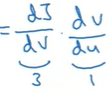 = dJ/dv · dv/du
3 1